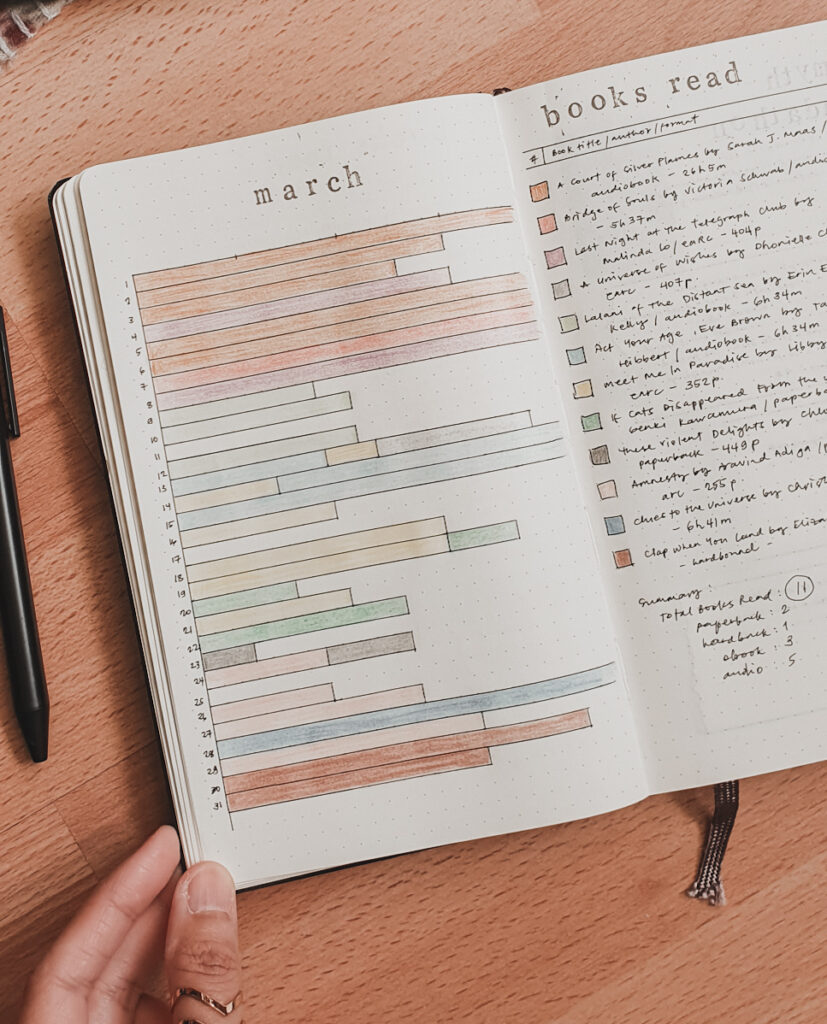 march
1
2
3
4
5
6
7
8
9
10
11
12
13
14
15
16
17
18
19
20
21
22
23
24
25
26
27
28
29
30
31
books read
# Book title / author / format
A Court of Silver Flames by Sarah J. Maas /
audiobook - 26h 5m
Bridge of Souls by Victoria Schwab / audio
- 5h 37m
Last Night at the Telegraph Club by
Malinda Lo / earc - 404p
A Universe of Wishes by Dhonielle
earc - 407p.
Lalani of the Distant Sea by Erin E
Kelly / audiobook - 6h 34m
Act Your Age, Eve Brown by Ta
Hibbert / audiobook - 6h 34m
Meet Me In Paradise by Libby
earc - 352p.
If Cats Disappeared From the
Genki Kawamura / paperb
These Violent Delights by Chl
paperback - 449p
Amnesty by Aravind Adiga /
arc - 255p
Clues to the Universe by Christ
- 6h 41m
Clap When You Land by Eliza
- hardbound -
Summary:
Total Books Read: 11
paperback: 2
hardback: 1
ebook: 3
audio: 5